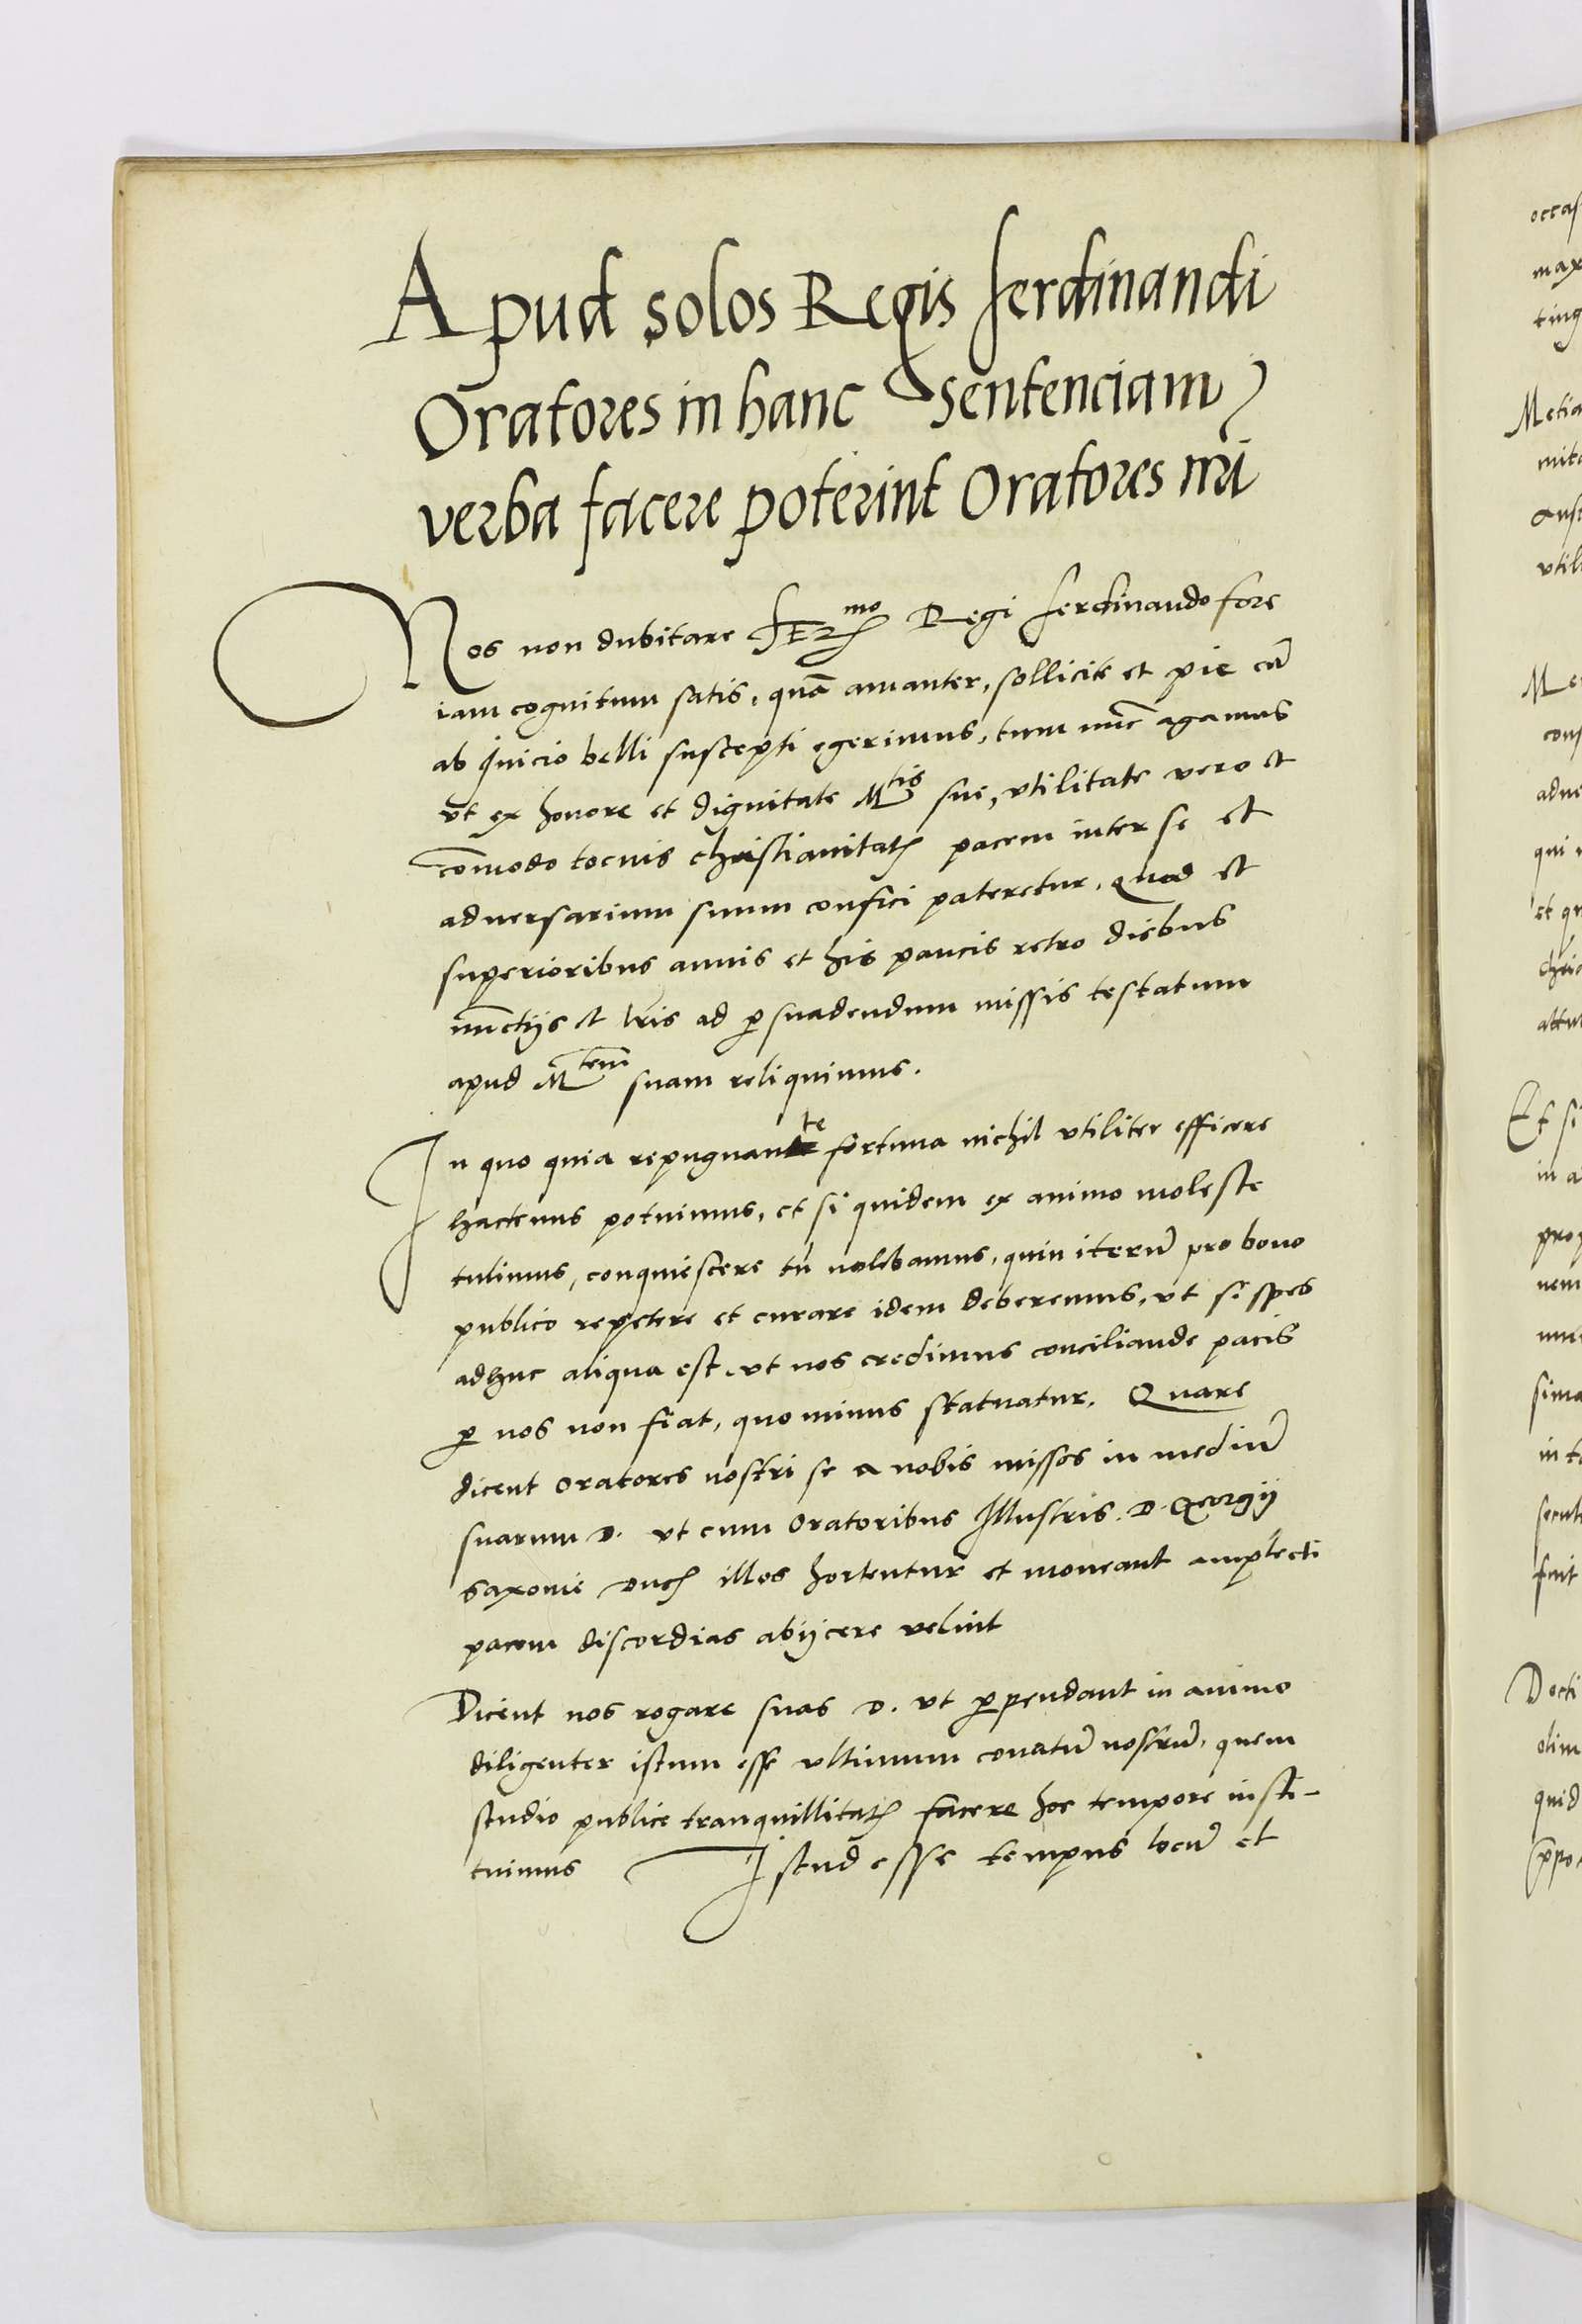 Apud solos Regis ferdinandi
Oratores in hanc sentenciam
verba facere poterint Oratores nr̄i
Nos non dubitare SER^mo Regi ferdinando fore
iam cognitum satis, quā amanter, sollicite et pie cū
ab Inicio belli suscepti egerimus, tum nūc agamus
vt ex honore et dignitate M^tis sue, vtilitate vero et
cōmodo tocius christianitatꝭ pacem inter se et
aduersarium suum confici pateretur, Quod et
superioribus annis et his paucis retro diebus
nūctijs et lr̄is ad ꝑsuadendum missis testatum
apud M^tem suam reliquimus.
In quo quia repugnante fortuna nichil vtiliter efficere
hactenus potuimus, et si quidem ex animo moleste
tulimus, conquiescere tn̄ nolebamus, quin iterū pro bono
publico repetere et curare idem deberemus, vt si spes
adhuc aliqua est, vt nos credimus conciliande pacis
ꝑ nos non fiat, quo minus statuatur. Quare
dicent oratores nostri se a nobis missos in mediū
suarum D. vt cum oratoribus Illustris. D. Georgij
saxonie Ducꝭ illos hortentur et moneant amplecti
pacem discordias abijcere velint
Dicent nos rogare suas D. vt ꝑpendant in animo
diligenter istum esse vltimum conatū nostrū, quem
studio publice tranquillitatꝭ facere hoc tempore insti-
tuimus Istud esse tempus locū et
occas
max
ting
Metia
mita
aust
vtil
cons
adue
qui
et qu
attu
Et si
in a
prop
nem
sima
in t
fuit
Docti
olim
quid